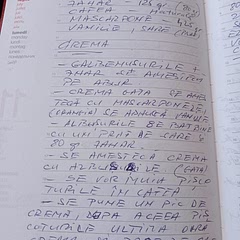 ZAHAR - 125 g
CAFEA
MASCARPONE
VANILIE, SARE
CREMA
- GALBENUSURILE +
ZAHAR SE AMESTECA
PE ABUR
- CREMA GATA SE AMES
TECA CU MASCARPONELE,
SE ADAUGA VANILIE
- ALBUSURILE SE BAT BINE
CU UN PRAF DE SARE +
80 gr ZAHAR.
- SE AMESTECA CREMA
CU ALBUSURILE (GATA)
- SE VOR MUIA PISCO
TURILE IN CAFEA
- SE PUNE UN PIC DE
CREMA, DUPA ACEEA PIS
COTURILE ULTIMA OARA